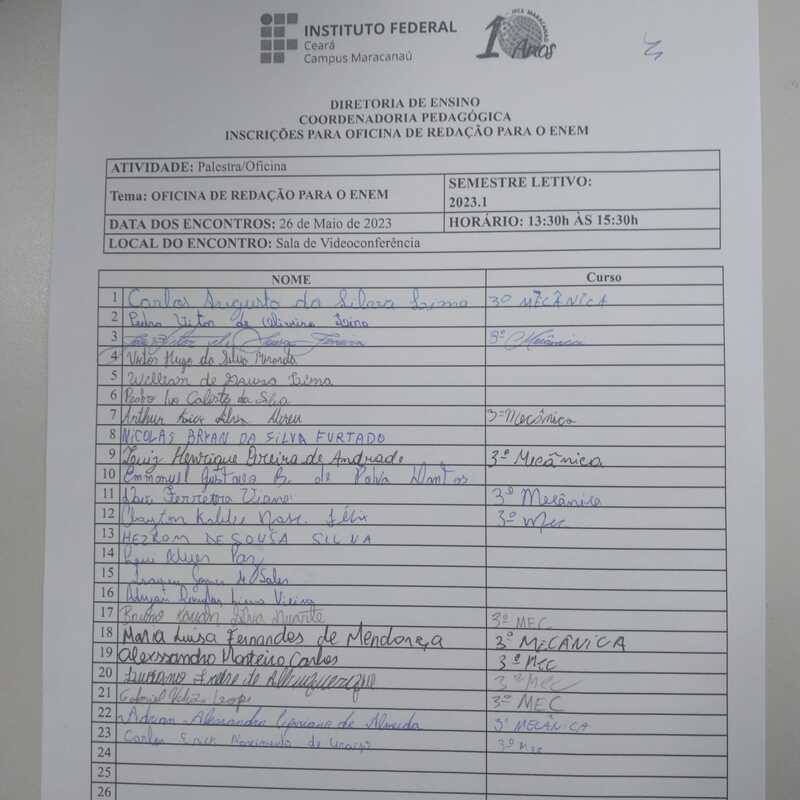 INSTITUTO FEDERAL
Ceará
Campus Maracanaú
IFCE MARACANAÚ
10 Anos
DIRETORIA DE ENSINO
COORDENADORIA PEDAGÓGICA
INSCRIÇÕES PARA OFICINA DE REDAÇÃO PARA O ENEM
ATIVIDADE: Palestra/Oficina
Tema: OFICINA DE REDAÇÃO PARA O ENEM
SEMESTRE LETIVO:
2023.1
DATA DOS ENCONTROS: 26 de Maio de 2023 HORÁRIO: 13:30h ÀS 15:30h
LOCAL DO ENCONTRO: Sala de Videoconferência
NOME Curso
1 Carlos Augusto da Silva Lima 3º MECÂNICA
2 Pedro Vitor de Oliveira
3 3º Mecânica
4 Victor Hugo da Silva Miranda
5 William de Sousa Lima
6 Pedro da Silva
7 Arthur Abreu 3º Mecânica
8 NICOLAS BRYAN DA SILVA FURTADO
9 Luiz Henrique Pereira de Andrade 3º Mecânica
10 Emmanuel Gustavo B. de Paiva Dantas
11 Ferreira Viana 3º Mecânica
12 Clayton Félix 3º Mec
13 HEZROM DE SOUSA SILVA
14 Alves Paz
15 Gomes de Sales
16 Adryan Lima Vieira
17 Bruno Silva Duarte 3º MEC
18 Maria Luisa Fernandes de Mendonça 3º MECÂNICA
19 Alexssandro Monteiro Carlos 3º MEC
20 Luciano de Albuquerque 3º Mec
21 Gabriel 3º MEC
22 Adrian Alexandre Cipriano de Almeida 3º MECÂNICA
23 Carlos Erick Nascimento de 3º Mec
24
25
26